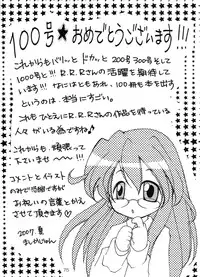 100号★おめでとうございます!!!
これからもバリっと ドカッと 200号 300号 そして
1000号と!!! R.R.R.さんの活躍を期待して
います!! なにはともあれ、100冊も本を出す
というのは、本当にすごい。
これも ひとえに R.R.R.さんの作品を待っている
人々がいる為ですね♪
これからも 頑張って
下さいませ ~!!!
コメントとイラスト
のみで恐縮ですが
お祝いの言葉と
かえさせて頂き
ます♡
2007. 夏
75